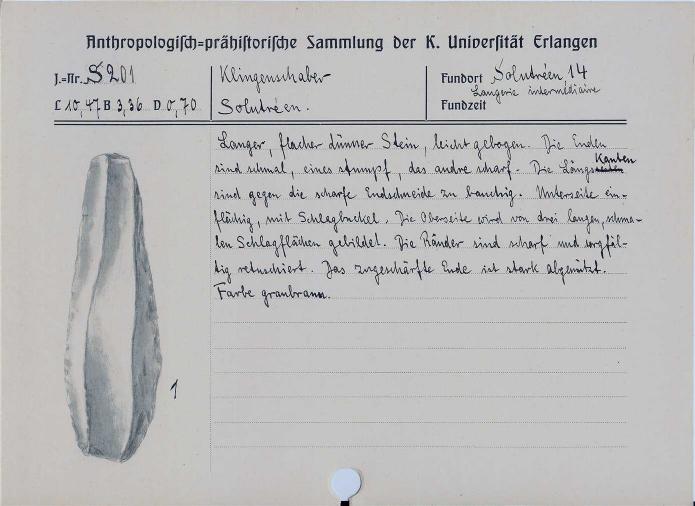 Anthropologisch=prähistorische Sammlung der K. Universität Erlangen
J.=Nr. S 201
Klingenschaber
Fundort Solutréen 14
Laugerie intermédiaire
L 10,47 B 3,36 D 0,70
Solutréen.
Fundzeit
Langer, flacher dünner Stein, leicht gebogen. Die Enden
sind schmal, eines stumpf, das andre scharf. Die Längskanten
sind gegen die scharfe Endschneide zu bauchig. Unterseite ein-
flächig, mit Schlagbuckel. Die Oberseite wird von drei langen, schma-
len Schlagflächen gebildet. Die Ränder sind scharf und sorgfäl-
tig retuschiert. Das zugeschärfte Ende ist stark abgenützt.
Farbe graubraun.
1